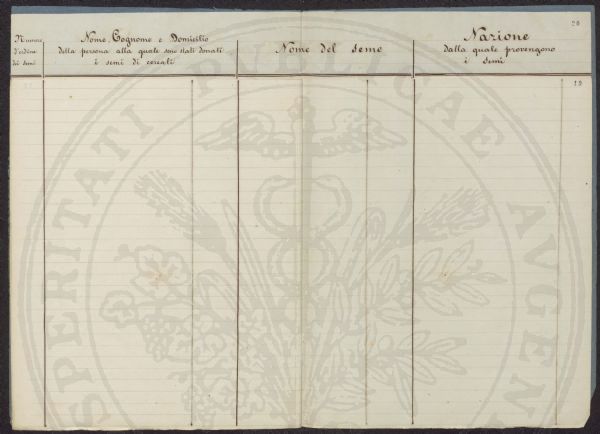 20
Numero
d'ordine
dei semi
Nome, Cognome e Domicilio
della persona alla quale sono stati donati
i semi di cereali
Nome del Seme
Nazione
dalla quale provengono
i semi
PROSPERITATI PUBLICAE AVGENDAE